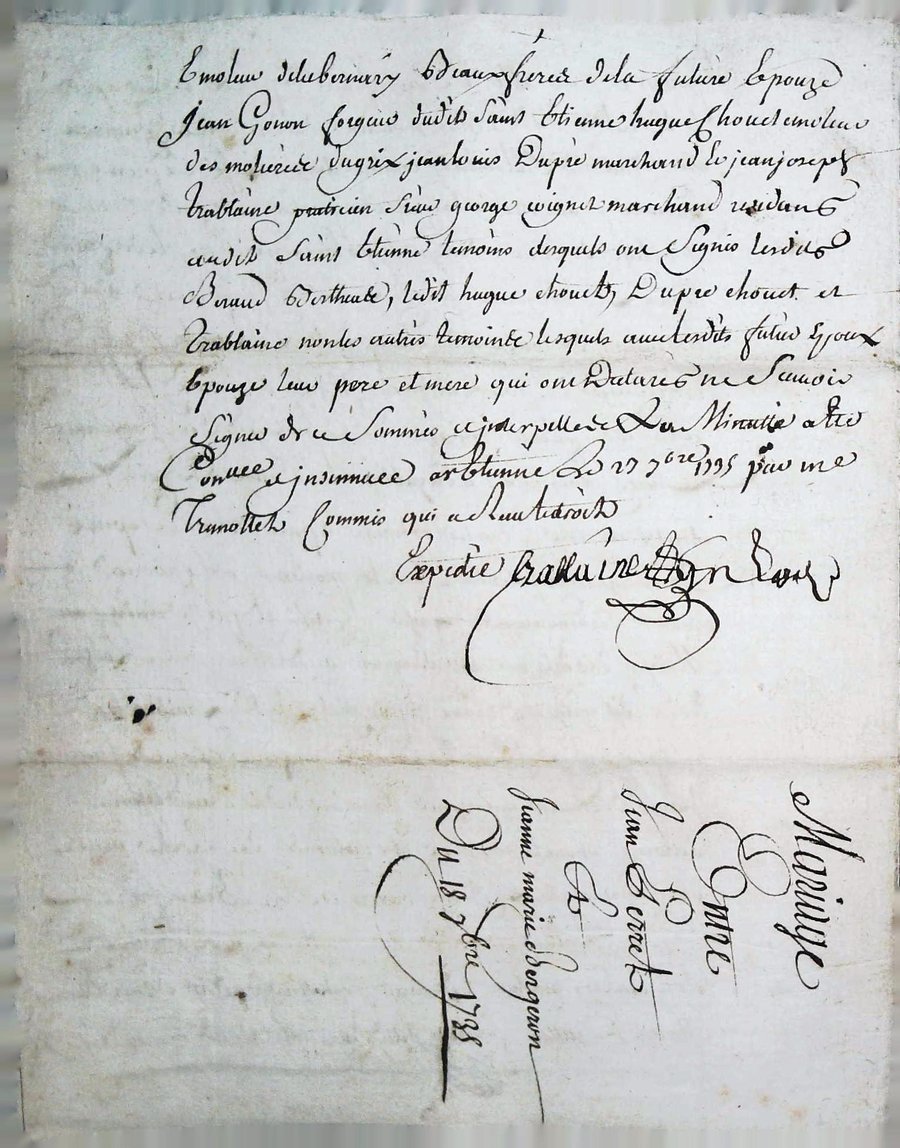 Emoleur delabernary Beaux freres dela future Epouze
Jean Gonon forgeur dudit Saint Etienne hugue Chouet emoleur
des molieres jean louis Dupre marchand & jean joseph
trablaine praticien Sieur george coignet marchand residans
audit Saint Etienne temoins desquels ont Signés lesdits
Beraud Berthead, ledit hugue chouet, Dupre chouet et
trablaine non les autres temoins lesquels avec lesdits futur Epoux
Epouze leur pere et mere qui ont Declarés ne Scavoir
Signer de ce Sommés & interpelles La Minutte a été
Con.llee & insinuée a St Etienne Le 27 7bre 1735 par me
Tramollet Commis qui a Reçu le droit
Expedié trablaine
Mariage
Entre
Jean Perret
Et
Jeanne marie bergeron
Du 18 7bre 1735